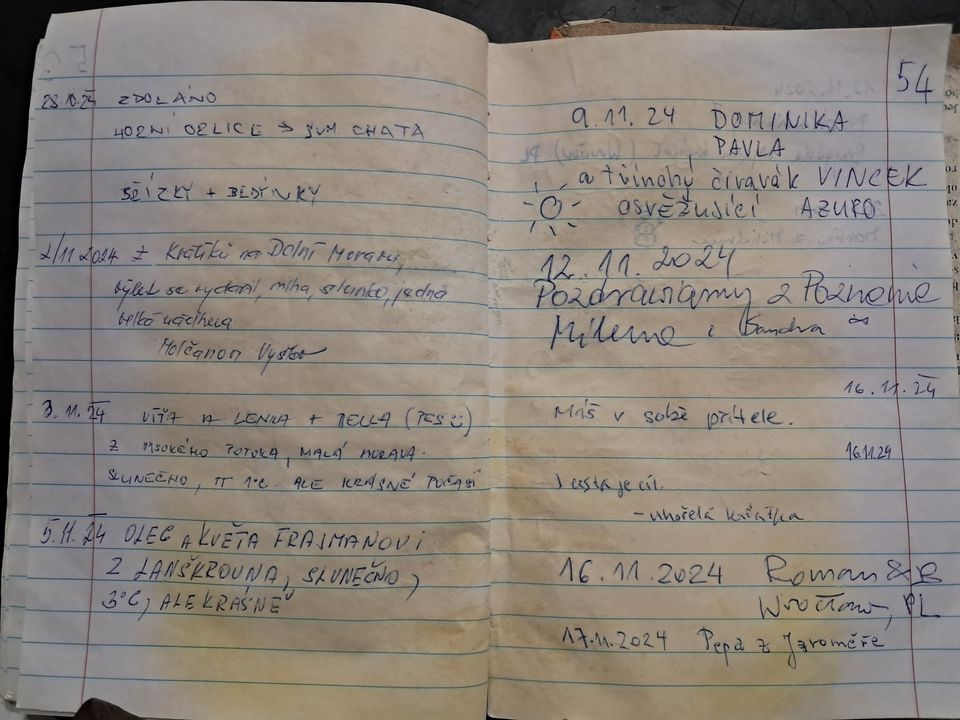 28.10.24 ZDOLÁNO
HORNÍ ORLICE → ŠUM. CHATA
BŘÍZKY + BEDÝNKY
2/11 2024 Z Králíků na Dolní Moravu,
výlet se vydařil, mlha, slunko, jedna
velká nádhera
Molčanon
3.11.24 VÍŤA A LENKA + BELLA (PES ☺)
Z POTOKA, MALÁ MORAVA.
SLUNEČNO, 1°C. ALE KRÁSNÉ POČASÍ
5.11.24 OLEG A KVĚTA FRAJMANOVI
Z LANŠKROUNA, SLUNEČNO,
3°C, ALE KRÁSNĚ
54
9.11.24 DOMINIKA
PAVLA
a třínohý čivavák VINCEK
OSVĚŽUJÍCÍ AZURO
12.11.2024
Pozdrawiamy z Poznania
Milena i Sandra
16.11.24
Máš v sobě přítele.
16.11.24
I cesta je cíl.
- uhořelá
16.11.2024 Roman &
Wrocław, PL
17.11.2024 Pepa z Jaroměře